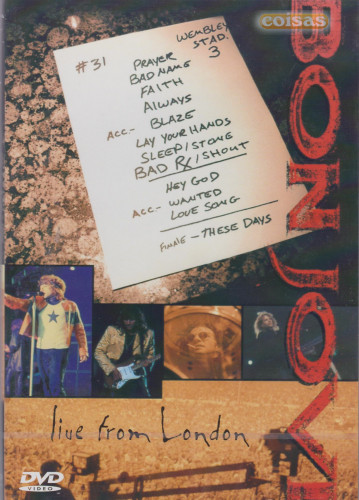 coisas
WEMBLEY
STAD.
3
#31
PRAYER
BAD NAME
FAITH
ALWAYS
ACC- BLAZE
LAY YOUR HANDS
SLEEP/STONE
BAD RX/SHOUT
HEY GOD
ACC- WANTED
LOVE SONG
FINALE - THESE DAYS
BON JOVI
live from London
DVD
VIDEO